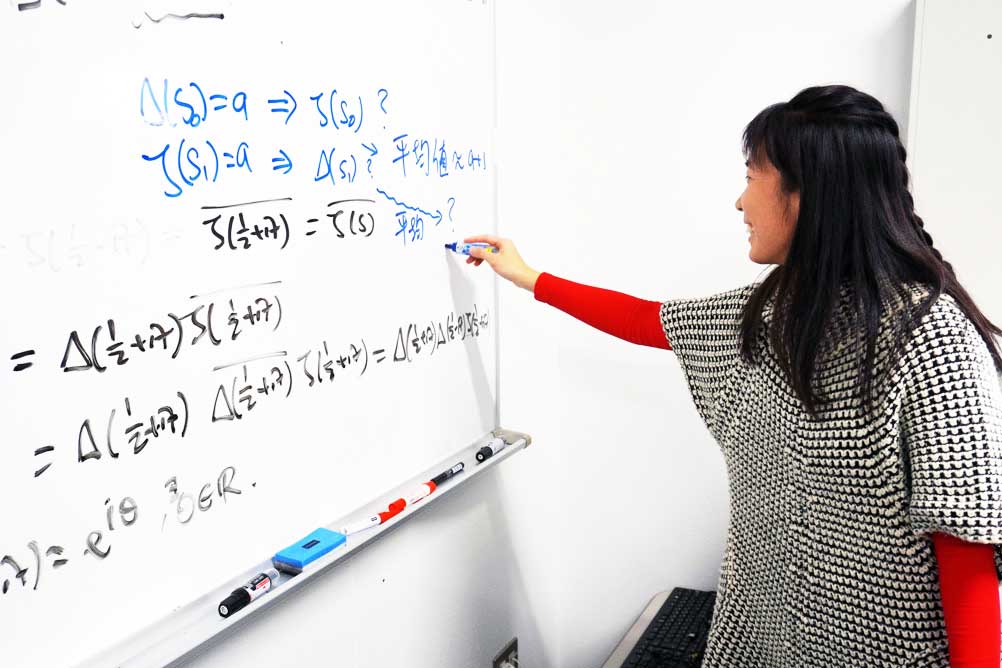 Δ(s₀)=a ⇒ ζ(s₀)?
ζ(s₁)=a ⇒ Δ(s₁)? → 平均値 ≈ a+1
平均 → ?
\overline{ζ(½+it)} = \overline{ζ(s)}
= Δ(½+it) \overline{ζ(½+it)}
= Δ(½+it) \overline{Δ(½+it)} ζ(½+it) = Δ(½+it)Δ(½+it)ζ(½+it)
= e^{iθ}, ∃θ∈ℝ.